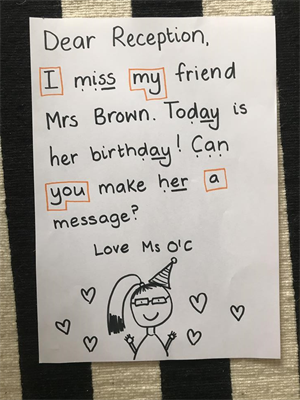 Dear Reception,
I miss my friend
Mrs Brown. Today is
her birthday! Can
you make her a
message?
Love Ms O'C